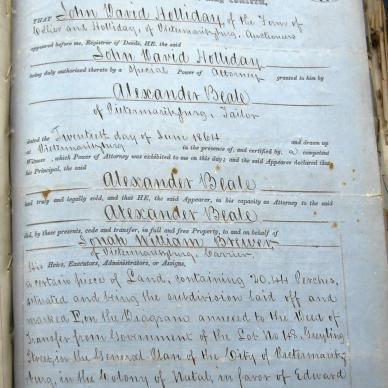 THAT John David Holliday, of the Firm of
and Holliday, of Pietermaritzburg, Auctioneers
appeared before me, Registrar of Deeds, HE, the said
John David Holliday
being duly authorised thereto by a Special Power of Attorney granted to him by
Alexander Beale
of Pietermaritzburg, Tailor
dated the Twentieth day of June 1864 and drawn up
at Pietermaritzburg in the presence of, and certified by, a competent
Witness, which Power of Attorney was exhibited to me on this day; and the said Appearer declared that
his Principal, the said
Alexander Beale
had truly and legally sold, and that HE, the said Appearer, in his capacity as Attorney to the said
Alexander Beale
did, by these presents, cede and transfer, in full and free Property, to and on behalf of
Jonah William Brewer
of Pietermaritzburg, Carrier,
His Heirs, Executors, Administrators, or Assigns,
a certain piece of Land, containing 20.44 Perches,
situated and being the subdivision laid off and
marked on the Diagram annexed to the Deed of
Transfer from Government of the Lot No 48, Greyling
Street, in the General Plan of the City of Pietermaritz
burg, in the Colony of Natal, in favor of Edward